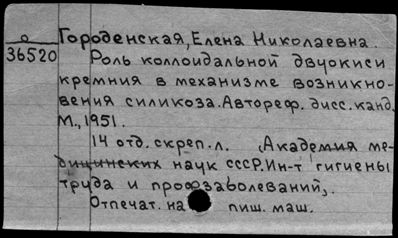 о
36520
Городенская, Елена Николаевна.
Роль коллоидальной двуокиси
кремния в механизме возникно-
вения силикоза. Автореф. дисс. канд.
М., 1951.
14 отд. скреп. л. Академия ме-
дицинских наук СССР. Ин-т гигиены
труда и профзаболеваний,.
Отпечат. на пиш. маш.